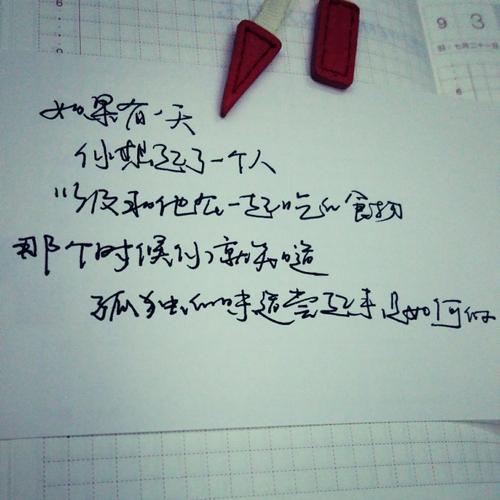 9 3
6
如果有一天
你想起了一个人
以及和他在一起吃的食物
那个时候你就知道
孤独的味道尝起来是如何的